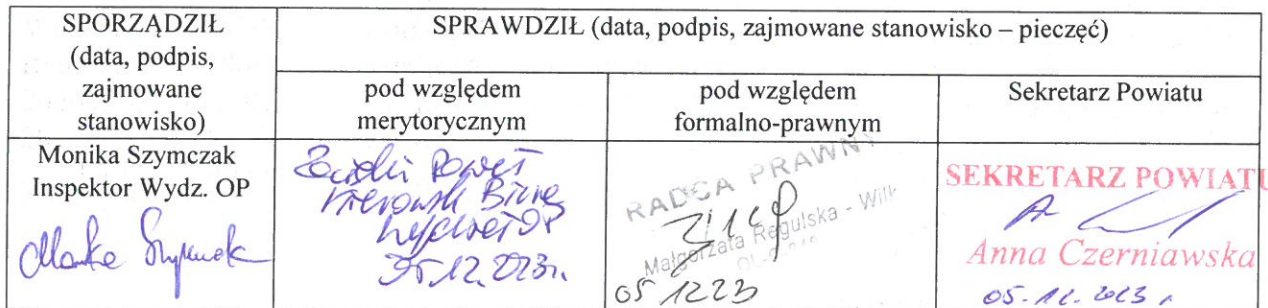 SPORZĄDZIŁ
(data, podpis,
zajmowane
stanowisko)
SPRAWDZIŁ (data, podpis, zajmowane stanowisko – pieczęć)
pod względem
merytorycznym
pod względem
formalno-prawnym
Sekretarz Powiatu
Monika Szymczak
Inspektor Wydz. OP
Paweł
05.12.2023r.
RADCA PRAWNY
Małgorzata Regulska - Wilk
05 12 23
SEKRETARZ POWIATU
Anna Czerniawska
05.12.2023 r